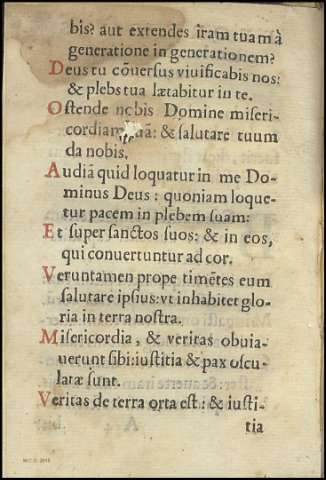 bis? aut extendes iram tuam à
generatione in generationem?
Deus tu cōuersus viuificabis nos:
& plebs tua lætabitur in te.
Ostende nobis Domine miseri-
cordiam uā: & salutare tuum
da nobis.
Audiā quid loquatur in me Do-
minus Deus: quoniam loque-
tur pacem in plebem suam:
Et super sanctos suos: & in eos,
qui conuertuntur ad cor.
Veruntamen prope timētes eum
salutare ipsius: vt inhabitet glo-
ria in terra nostra.
Misericordia, & veritas obuia-
uerunt sibi: iustitia & pax oscu-
latæ sunt.
Veritas de terra orta est: & iusti-
tia